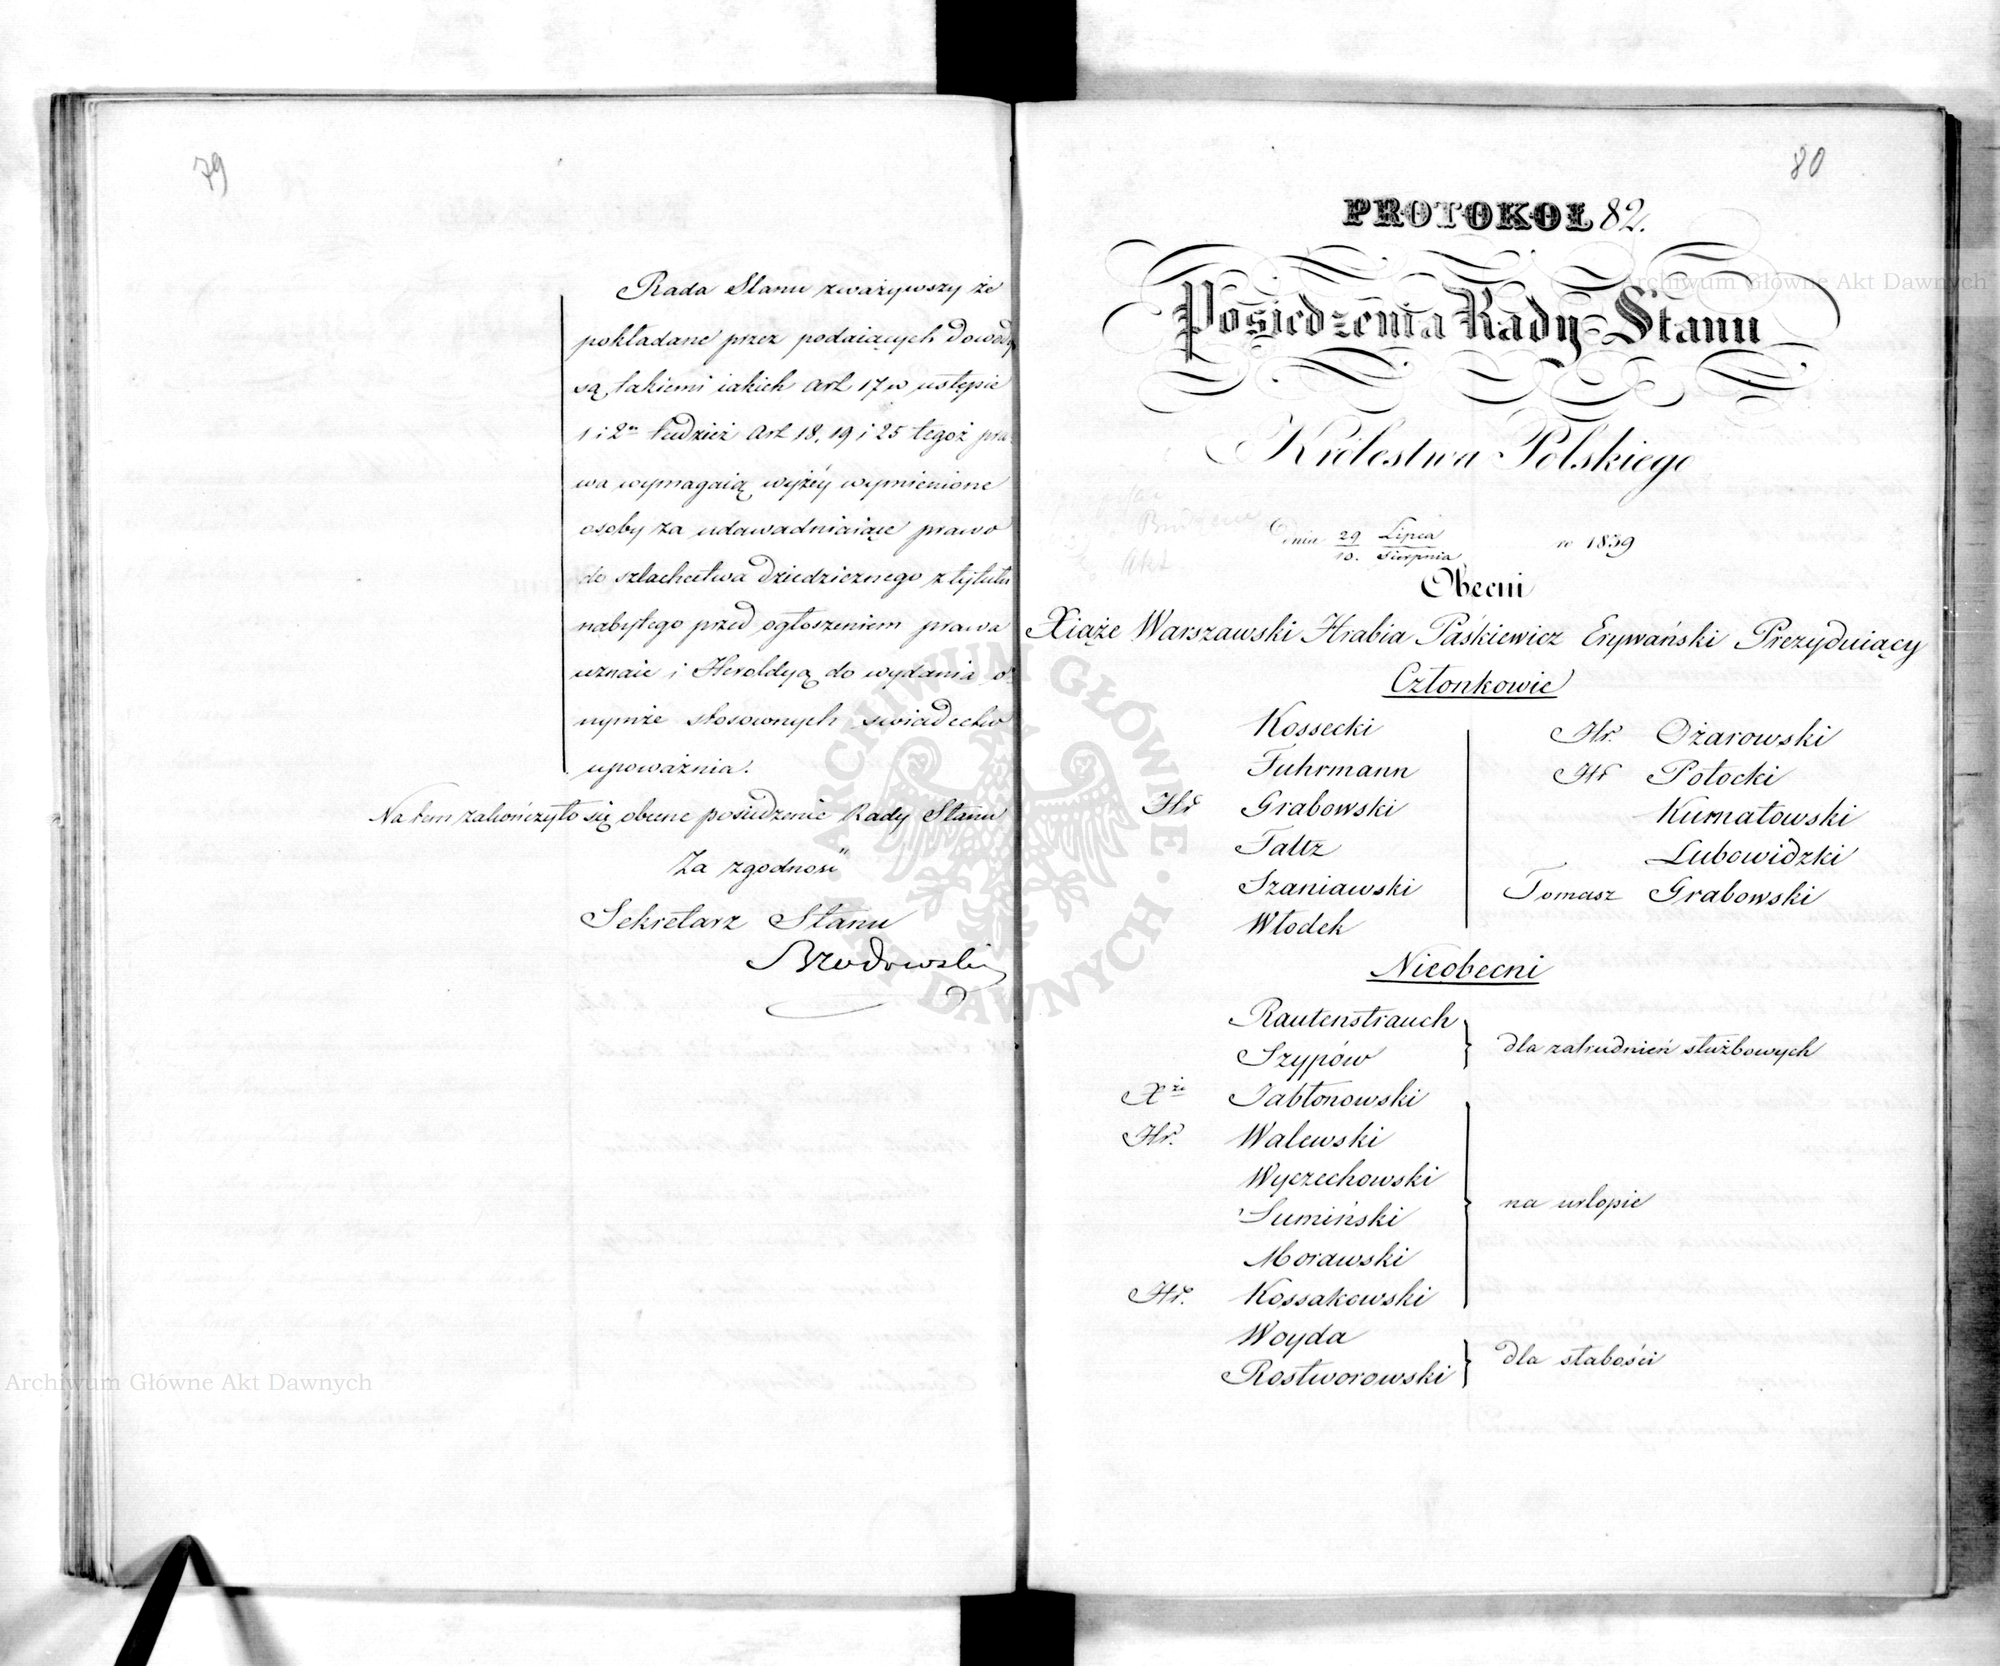 79
Rada Stanu zważywszy że
pokładane przez podaiących dowody
są takiemi iakich art 17 w ustępie
1 i 2m tudzież art 18, 19 i 25 tegoż pra-
wa wymagaią wyżéy wymienione
osoby za udawadniaiące prawo
do szlachectwa dziedzicznego z tytułu
nabytego przed ogłoszeniem prawa
uznaie i Heroldyą do wydania o-
nymże stosownych swiadectw
upoważnia.
Na tem zakończyło się obecne posiedzenie Rady Stanu
Za zgodność
Sekretarz Stanu
Brodowski
80
PROTOKOŁ 82.
Posiedzenia Rady Stanu
Królestwa Polskiego
Dnia 29 Lipca / 10. Sierpnia w 1839
Obecni
Xiąże Warszawski Hrabia Paśkiewicz Erywański Prezyduiący
Członkowie
Kossecki
Fuhrmann
Hr Grabowski
Faltz
Szaniawski
Włodek
Hr. Ożarowski
Hr Potocki
Kurnatowski
Lubowidzki
Tomasz Grabowski
Nieobecni
Rautenstrauch
Szypów
dla zatrudnień służbowych
Xże Jabłonowski
Hr. Walewski
Wyczechowski
Sumiński
Morawski
Hr. Kossakowski
na urlopie
Woyda
Rostworowski
dla słabości
Archiwum Główne Akt Dawnych
Archiwum Główne Akt Dawnych
ARCHIWUM GŁÓWNE AKT DAWNYCH